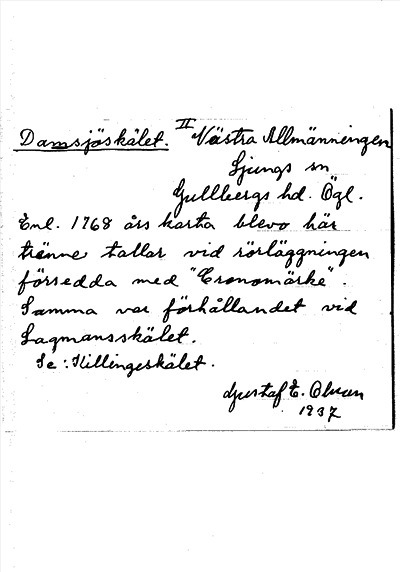 II
Damsjöskälet. Västra Allmänningen
Ljungs sn
Gullbergs hd. Ögl.
Enl. 1768 års karta blevo här
trenne tallar vid rörläggningen
försedda med "Cronomärke".
Samma var förhållandet vid
Lagmansskälet.
Se: Killingeskälet.
Gustaf E.
1937